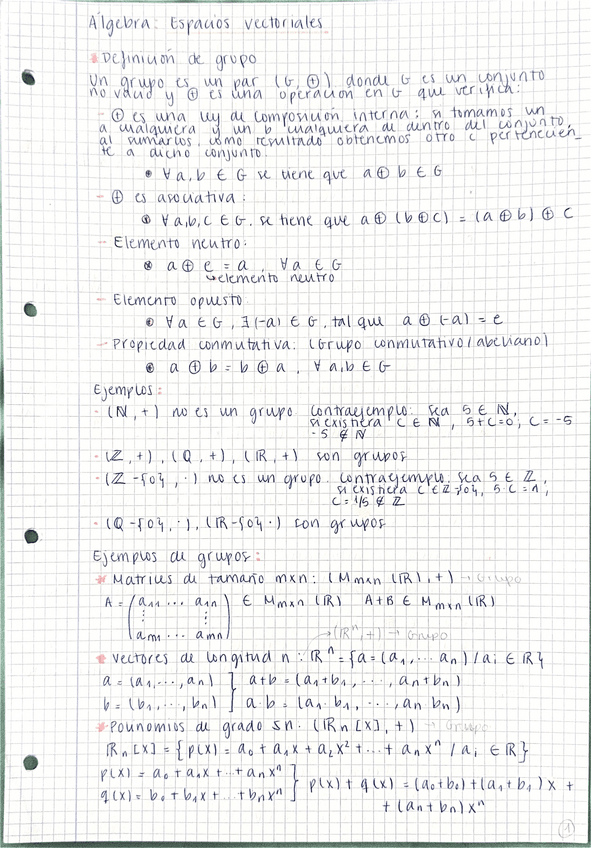 Álgebra: Espacios vectoriales
* Definición de grupo
Un grupo es un par (G, ⊕) donde G es un conjunto
no vacío y ⊕ es una operación en G que verifica:
- ⊕ es una ley de composición interna: si tomamos un
a cualquiera y un b cualquiera de dentro del conjunto,
al sumarlos, como resultado obtenemos otro c pertenecien_
te a dicho conjunto.
• ∀ a, b ∈ G se tiene que a ⊕ b ∈ G
- ⊕ es asociativa:
• ∀ a, b, c ∈ G, se tiene que a ⊕ (b ⊕ c) = (a ⊕ b) ⊕ c
- Elemento neutro:
• a ⊕ e = a , ∀ a ∈ G
↳ elemento neutro
- Elemento opuesto
• ∀ a ∈ G, ∃ (-a) ∈ G, tal que a ⊕ (-a) = e
- Propiedad conmutativa: (Grupo conmutativo/abeliano)
• a ⊕ b = b ⊕ a , ∀ a, b ∈ G
Ejemplos:
- (ℕ, +) no es un grupo. Contraejemplo: sea 5 ∈ ℕ,
si existiera c ∈ ℕ, 5+c=0, c = -5
-5 ∉ ℕ
- (ℤ, +), (ℚ, +), (ℝ, +) son grupos
- (ℤ - {0}, ·) no es un grupo. Contraejemplo: sea 5 ∈ ℤ,
si existiera c ∈ ℤ - {0}, 5·c = 1,
c = 1/5 ∉ ℤ
- (ℚ - {0}, ·), (ℝ - {0}, ·) son grupos
Ejemplos de grupos:
* Matrices de tamaño mxn: (Mmxn (ℝ), +) → Grupo
A = (a11 ... a1n
⋮ ⋮
am1 ... amn) ∈ Mmxn (ℝ) A+B ∈ Mmxn (ℝ)
→ (ℝⁿ, +) → Grupo
* Vectores de longitud n: ℝⁿ = {a = (a1, ... an) / ai ∈ ℝ}
a = (a1, ..., an) } a+b = (a1+b1, ..., an+bn)
b = (b1, ..., bn) } a·b = (a1·b1, ..., an·bn)
* Polinomios de grado ≤n. (ℝn [x], +) → Grupo
ℝn [x] = {p(x) = a0 + a1x + a2x² + ... + anxⁿ / ai ∈ ℝ}
p(x) = a0 + a1x + ... + anxⁿ } p(x) + q(x) = (a0+b0) + (a1+b1) x +
q(x) = b0 + b1x + ... + bnxⁿ } + (an+bn) xⁿ
1